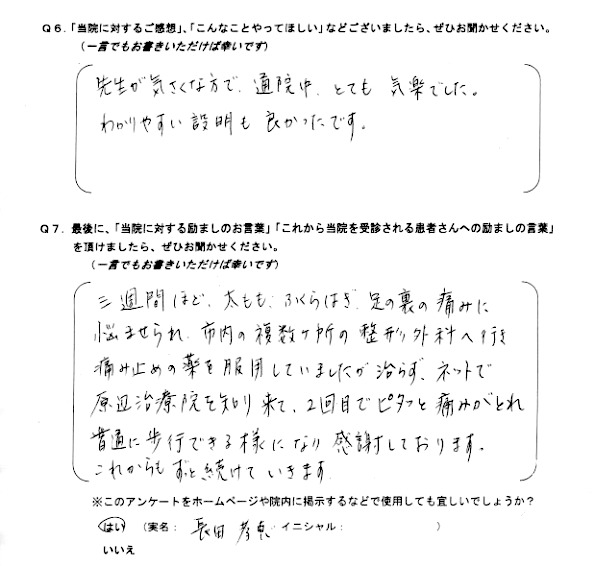 Q6．「当院に対するご感想」、「こんなことやってほしい」などございましたら、ぜひお聞かせください。
（一言でもお書きいただけば幸いです）
先生が気さくな方で、通院中、とても 気楽でした。
わかりやすい 説明も 良かったです。
Q7．最後に、「当院に対する励ましのお言葉」「これから当院を受診される患者さんへの励ましの言葉」
を頂けましたら、ぜひお聞かせください。
（一言でもお書きいただけば幸いです）
三週間ほど、太もも、ふくらはぎ、足の裏の痛みに
悩ませられ、市内の複数ヶ所の整形外科へ行き
痛み止めの薬を服用していましたが治らず、ネットで
原辺治療院を知り来て、2回目でピタッと痛みがとれ
普通に歩行できる様になり感謝しております。
これからもずっと続けていきます
※このアンケートをホームページや院内に掲示するなどで使用しても宜しいでしょうか？
はい （実名： 長田 イニシャル： ）
いいえ